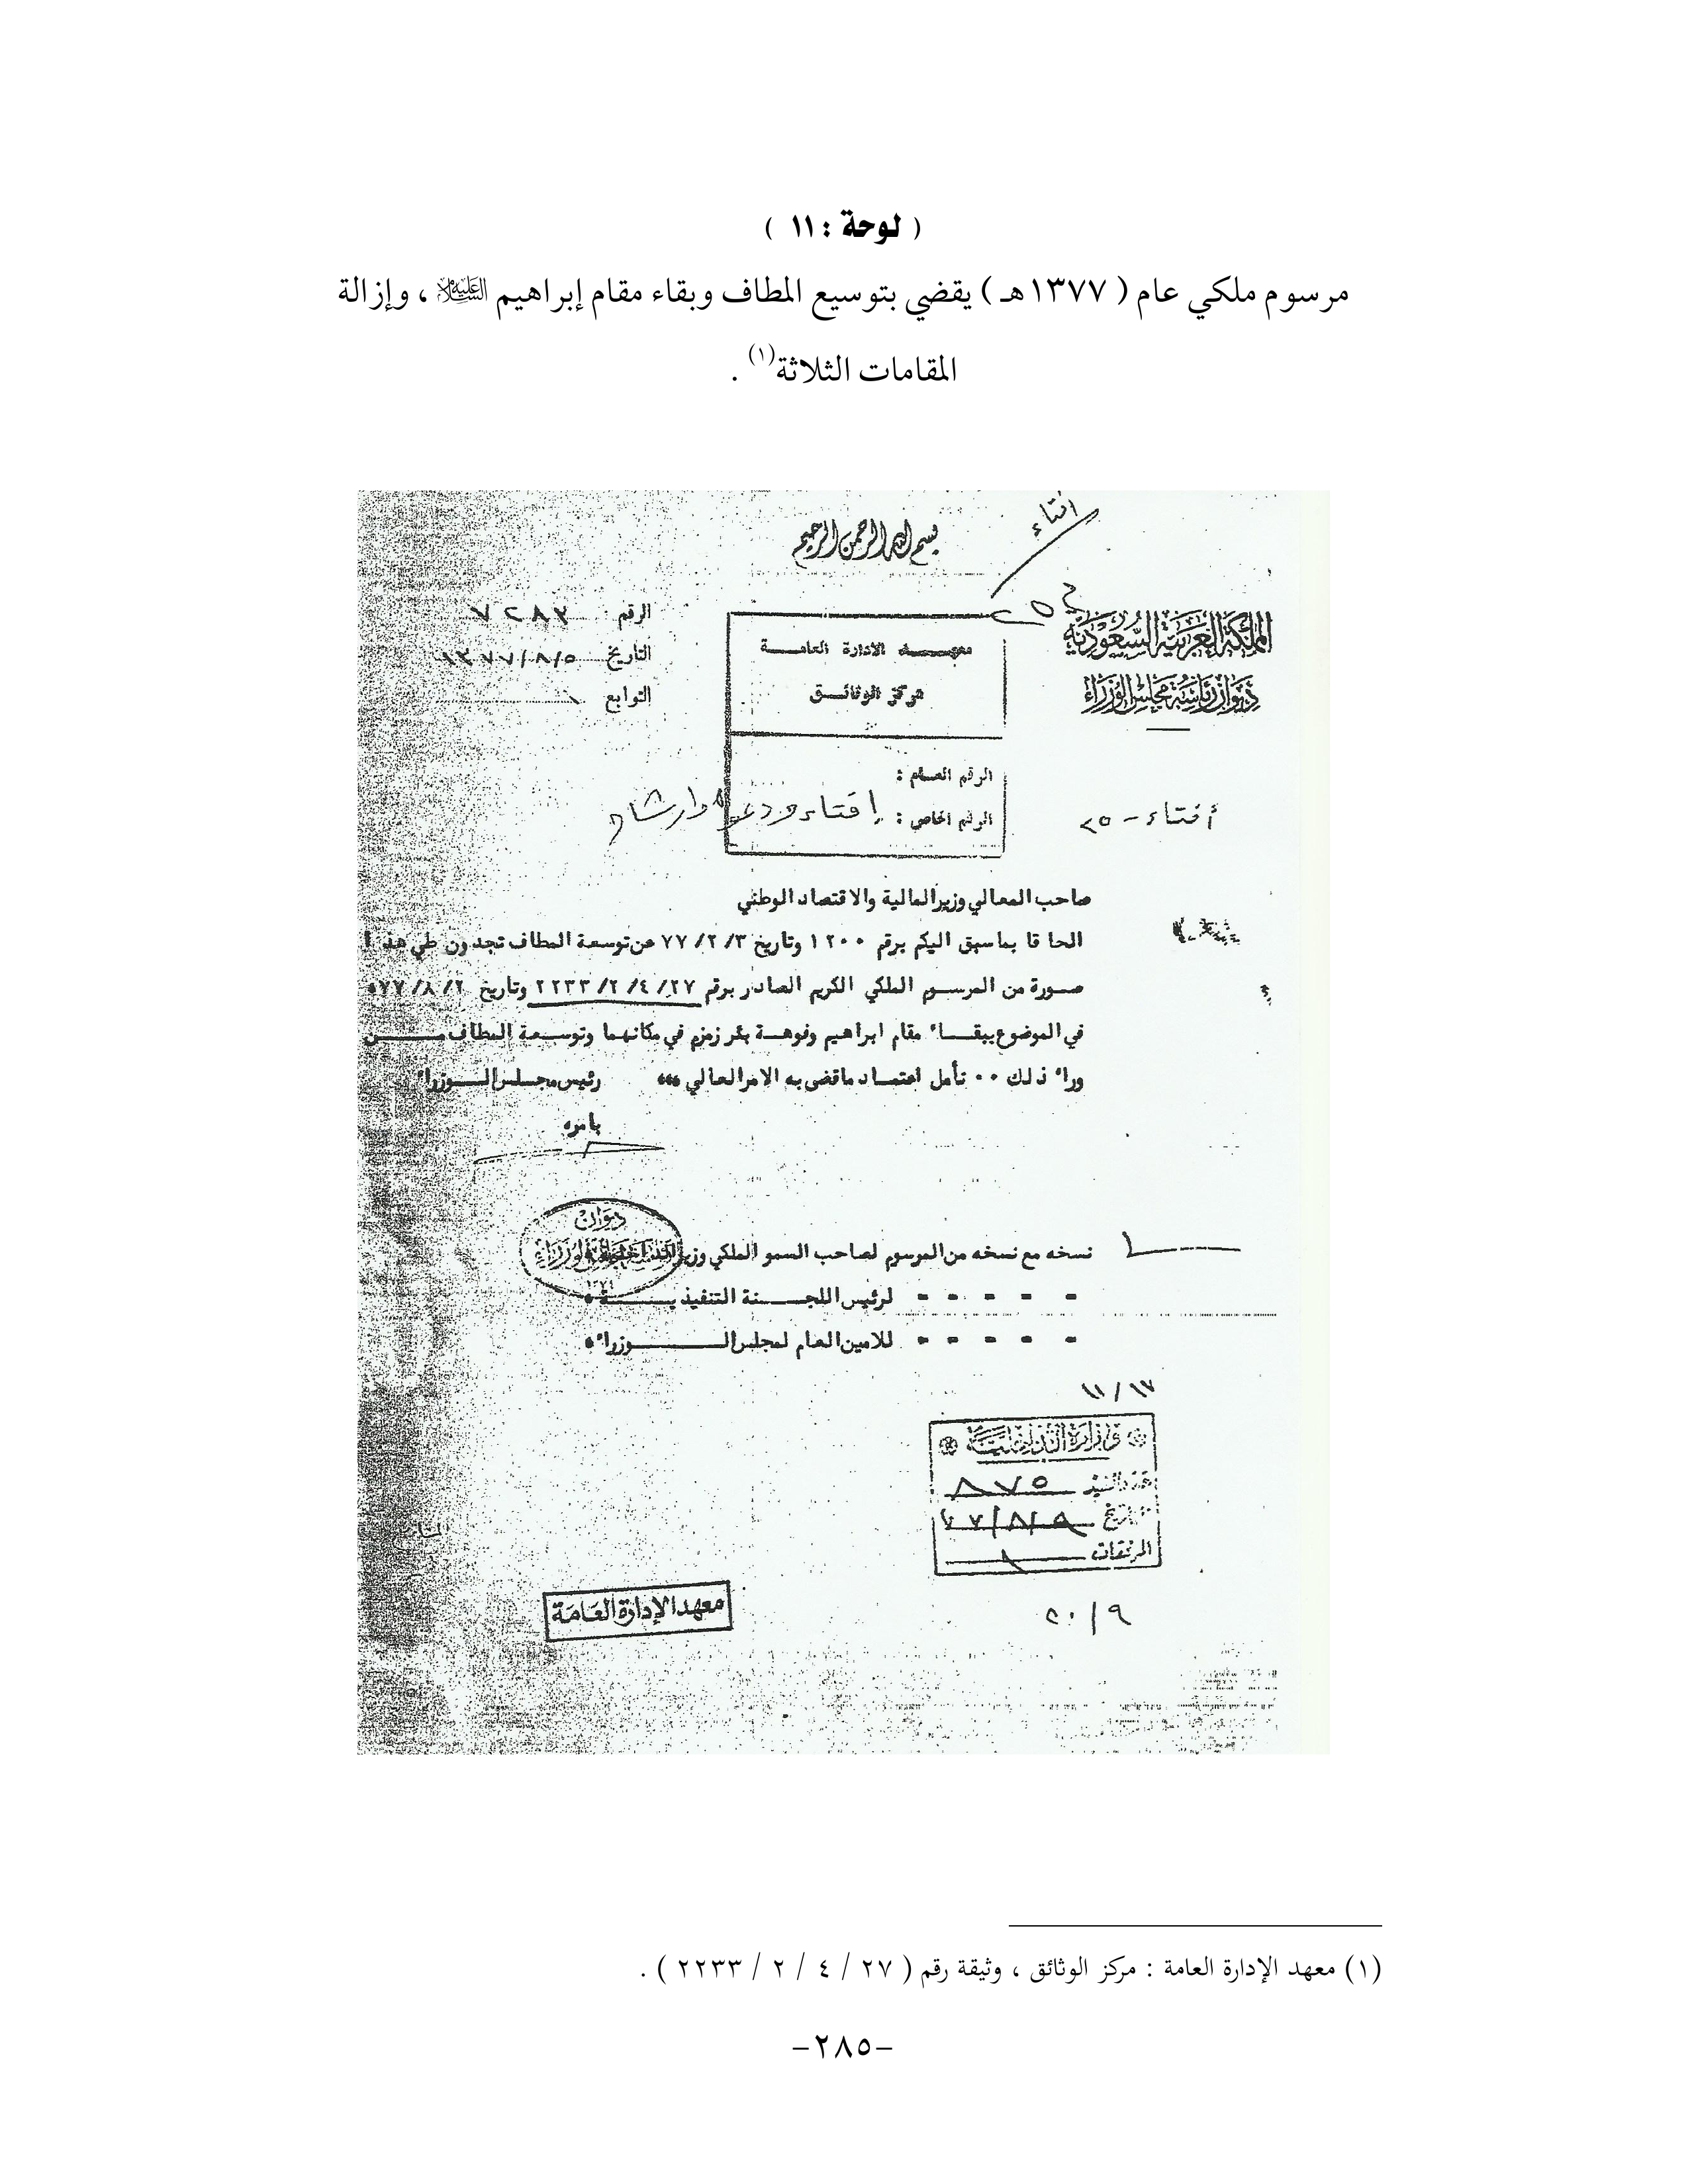 ( لوحة : ١١ )
مرسوم ملكي عام ( ١٣٧٧هـ ) يقضي بتوسيع المطاف وبقاء مقام إبراهيم عليه السلام ، وإزالة
المقامات الثلاثة(١) .
افتاء
بسم الله الرحمن الرحيم
٢٥
المملكة العربية السعودية
ديوان رئاسة مجلس الوزراء
معهد الادارة العامة
مركز الوثائق
الرقم العام :
الرقم الخاص : إفتاء ودعوة وارشاد
الرقم ٧٢٨٢
التاريخ ١٣٧٧/٨/٥
التوابع ١
أفتاء - ٢٥
صاحب المعالي وزير المالية والاقتصاد الوطني
الحاقا بما سبق اليكم برقم ١٢٠٠ وتاريخ ٧٧/٢/٣ عن توسعة المطاف تجدون طي هذا
صورة من المرسوم الملكي الكريم الصادر برقم ٢٢٣٣/٢/٤/٢٧ وتاريخ ٧٧/٨/٢
في الموضوع ببقاء مقام ابراهيم وفوهة بئر زمزم في مكانهما وتوسعة المطاف من
وراء ذلك ٠٠ نأمل اعتماد ماقضى به الامر العالي ،،، رئيس مجلس الوزراء
بامره
ديوان
رئاسة مجلس الوزراء
نسخه مع نسخه من المرسوم لصاحب السمو الملكي وزير
- - - - - لرئيس اللجنة التنفيذية
- - - - - للامين العام لمجلس الوزراء
١١/١٧
وزارة الداخلية
عدد القيد ٨٧٥
التاريخ ٧٧/٨/٩
المرفقات ١
معهد الإدارة العامة
٢٠/٩
(١) معهد الإدارة العامة : مركز الوثائق ، وثيقة رقم ( ٢٧ / ٤ / ٢ / ٢٢٣٣ ) .
-٢٨٥-